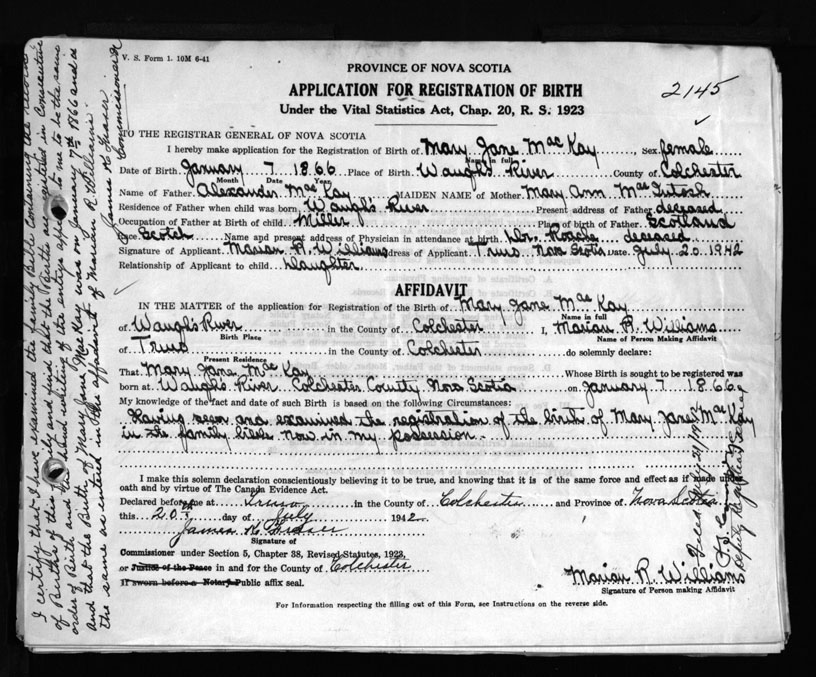 V. S. Form 1. 10M 6-41
PROVINCE OF NOVA SCOTIA
APPLICATION FOR REGISTRATION OF BIRTH
Under the Vital Statistics Act, Chap. 20, R. S. 1923
2145
TO THE REGISTRAR GENERAL OF NOVA SCOTIA
I hereby make application for the Registration of Birth of Mary Jane MacKay, Sex female
Name in full
Date of Birth January 7 1866 Place of Birth Waugh's River County of Colchester
Month Date Year
Name of Father Alexander MacKay MAIDEN NAME of Mother Mary Ann MacIntosh
Residence of Father when child was born Waugh's River Present address of Father deceased
Occupation of Father at Birth of child Miller Place of birth of Father Scotland
Race Scotch Name and present address of Physician in attendance at birth Dr. Roach deceased
Signature of Applicant Marian R. Williams Address of Applicant Truro Nova Scotia Date July 20 1942
Relationship of Applicant to child Daughter
AFFIDAVIT
IN THE MATTER of the application for Registration of the Birth of Mary Jane MacKay
Name in full
of Waugh's River in the County of Colchester I, Marian R. Williams
Birth Place Name of Person Making Affidavit
of Truro in the County of Colchester do solemnly declare:
Present Residence
That Mary Jane MacKay Whose Birth is sought to be registered was
born at Waugh's River Colchester County Nova Scotia on January 7 1866
My knowledge of the fact and date of such Birth is based on the following Circumstances:
Having seen and examined the registration of the birth of Mary Jane MacKay
in the family bible now in my possession.
I make this solemn declaration conscientiously believing it to be true, and knowing that it is of the same force and effect as if made under
oath and by virtue of The Canada Evidence Act.
Declared before me at Truro in the County of Colchester and Province of Nova Scotia
this 20th day of July 1942
James K. Fraser
Signature of
Commissioner under Section 5, Chapter 38, Revised Statutes, 1923,
or Justice of the Peace in and for the County of Colchester
If sworn before a Notary Public affix seal.
Marian R. Williams
Signature of Person making Affidavit
For Information respecting the filling out of this Form, see Instructions on the reverse side.
I certify that I have examined the family Bible Containing the record
of Births of this family and find that the Births are entered in Consecutive
order of Birth and the hand writing of the entries appears to me to be the same
and that the Birth of Mary Jane MacKay was on January 7th 1866 and is
the same as entered in the affidavit of Marian R. Williams.
James K. Fraser
Commissioner
Filed July 21/1942
Deputy Registrar General